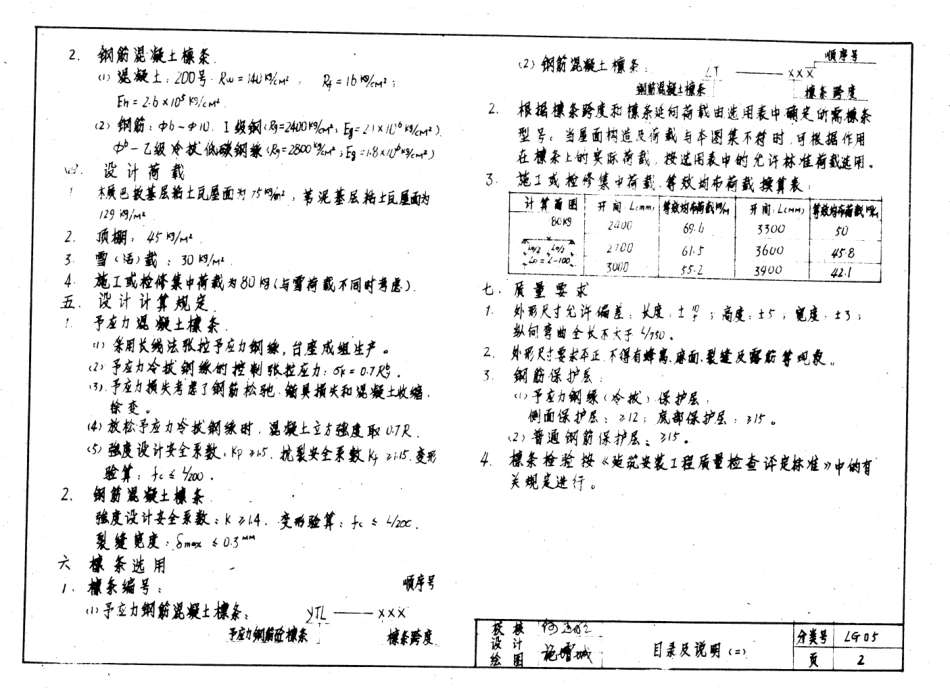 2. 钢筋混凝土檩条
(1) 混凝土:200号 Rw=140kg/cm², Rf=16kg/cm²;
Eh=2.6×10⁵kg/cm²
(2) 钢筋:Φ6~Φ10, I级钢(Rg=2400kg/cm², Eg=2.1×10⁶kg/cm²)
乙级冷拔低碳钢絲(Rg=2800kg/cm²; Eg=1.8×10⁶kg/cm²)
四. 设计荷载
1 木质巴板基层粘土瓦屋面为75kg/m², 苇泥基层粘土瓦屋面为
129kg/m²
2. 顶棚: 45kg/m²
3. 雪(活)载: 30kg/m²
4. 施工或检修集中荷载为80kg(与雪荷载不同时考虑).
五. 设计计算规定
1. 予应力混凝土檩条
(1) 采用长线法张拉予应力钢絲,台座成组生产。
(2) 予应力冷拔钢絲的控制张拉应力: σk=0.7
(3) 予应力损失考虑了钢筋松驰、锚具损失和混凝土收缩、
徐变。
(4) 放松予应力冷拔钢絲时, 混凝土立方强度取0.7R.
(5) 强度设计安全系数, Kp≥1.5, 抗裂安全系数Kf≥1.15, 变形
验算: fc≤L/200.
2. 钢筋混凝土檩条
强度设计安全系数: K≥1.4, 变形验算: fc≤L/200.
裂缝宽度: δmax≤0.3mm
六 檩条选用
1. 檩条编号: 順序号
(1) 予应力钢筋混凝土檩条: YTL —— ×××
予应力钢筋砼檩条 檩条跨度
順序号
(2) 钢筋混凝土檩条: LT —— ×××
钢筋混凝土檩条 檩条跨度
2. 根据檩条跨度和檩条延向荷载由选用表中确定所需檩条
型号。当屋面构造及荷载与本图集不符时,可根据作用
在檩条上的实际荷载,按选用表中的允许标准荷载选用。
3. 施工或检修集中荷载,等效均布荷载换算表:
计算简图 开间L(mm) 等效均布荷载kg/m 开间L(mm) 等效均布荷载kg/m
80kg 2400 69.6 3300 50
Lo/2 Lo/2 2700 61.5 3600 45.8
Lo=L-100 3000 55.2 3900 42.1
七. 质量要求
1. 外形尺寸允许偏差: 长度: ; 高度: ±5; 宽度: ±3;
纵向弯曲全长不大于L/750.
2. 外形尺寸要求平正, 不得有蜂窝、麻面、裂缝及露筋等现象。
3. 钢筋保护层:
(1) 予应力钢絲(冷拔)保护层:
侧面保护层: ≥12; 底部保护层: ≥15.
(2) 普通钢筋保护层: ≥15.
4. 檩条检验按《建筑安装工程质量检查评定标准》中的有
关规定进行。
校核
设计 施增城
绘图
目录及说明(二)
分类号 LG05
页 2